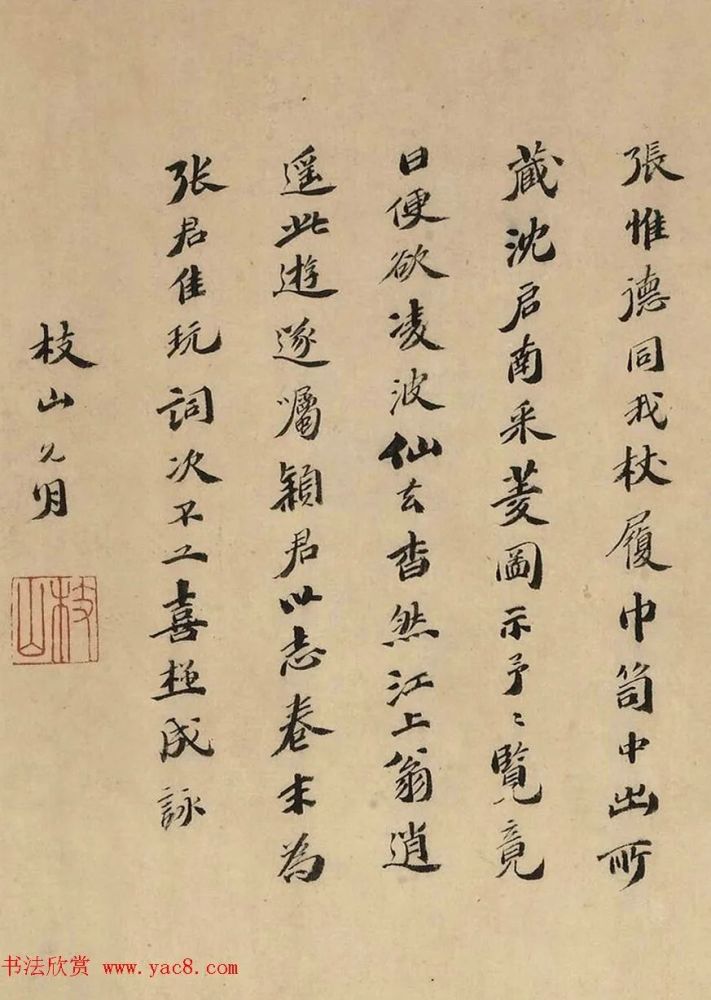 張惟德同我杖履巾笥中出所
藏沈启南采菱圖示予〻覧竟
日便欲凌波仙去杳然江上翁逍
遥此遊遂嘱穎君以志卷末為
張君佳玩詞次不工喜極成詠
枝山允明
枝山
书法欣赏 www.yac8.com